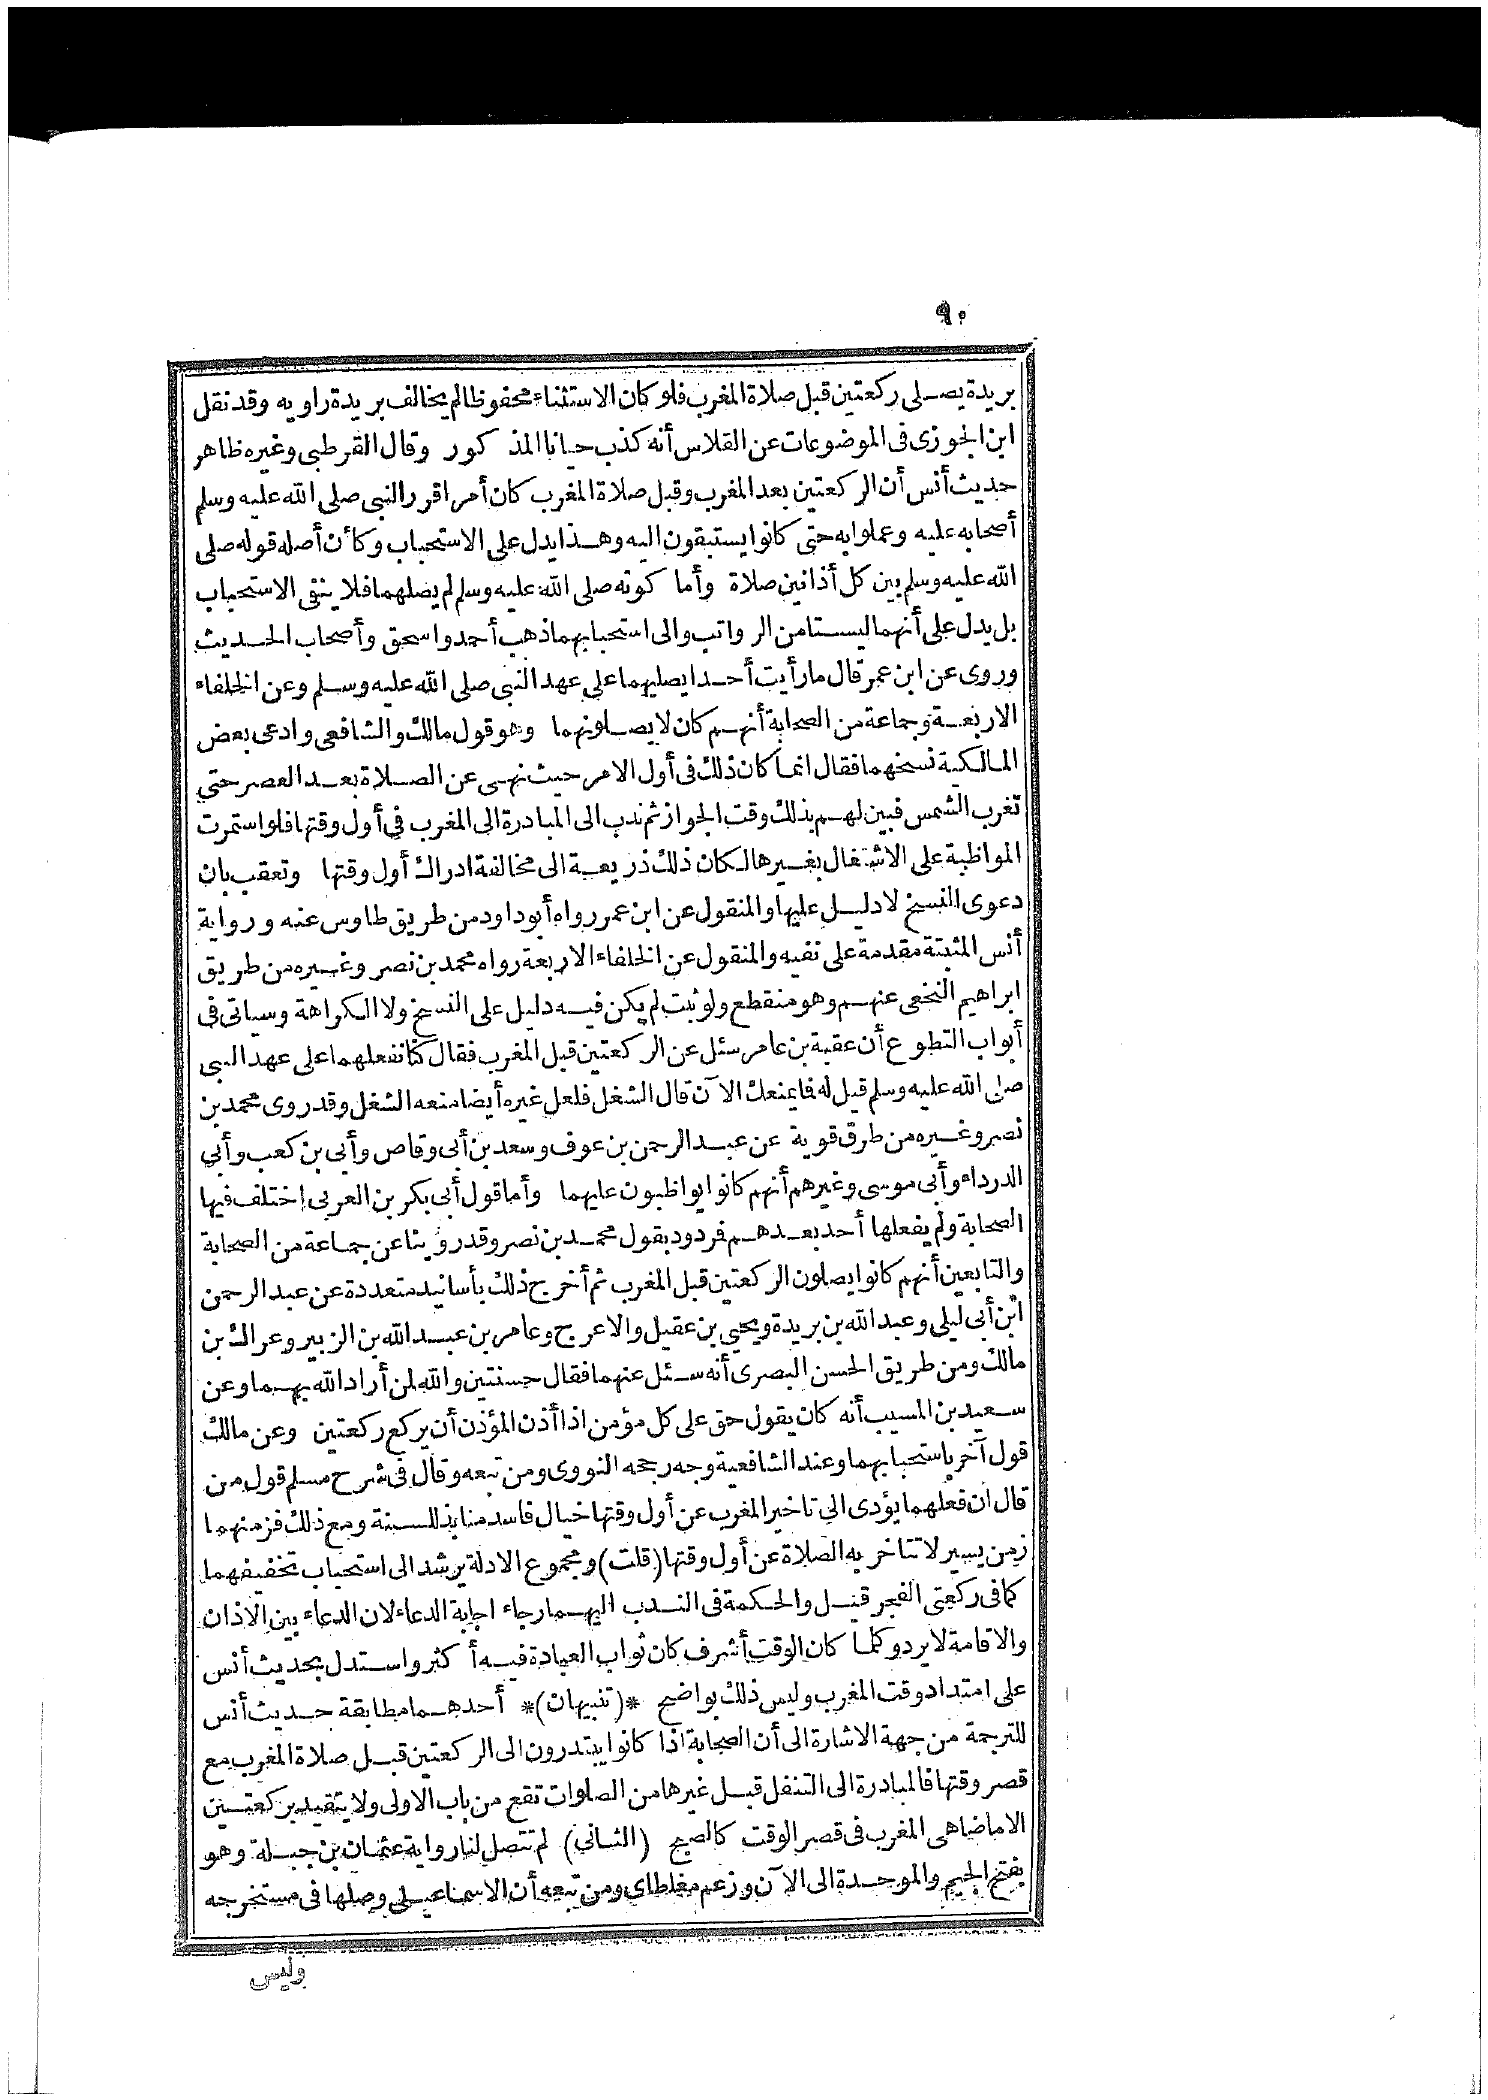 ٩٠
بريدة يصلى ركعتين قبل صلاة المغرب فلو كان الاستثناء محفوظا لم يخالف بريدة راويه وقد نقل
ابن الجوزى فى الموضوعات عن الفلاس أنه كذب حيانا المذكور وقال القرطبى وغيره ظاهر
حديث أنس أن الركعتين بعد المغرب وقبل صلاة المغرب كان أمرا قرر النبى صلى الله عليه وسلم
أصحابه عليه وعملوا به حتى كانوا يستبقون اليه وهذا يدل على الاستحباب وكأن أصله قوله صلى
الله عليه وسلم بين كل أذانين صلاة وأما كونه صلى الله عليه وسلم لم يصلهما فلا ينفى الاستحباب
بل يدل على أنهما ليستا من الرواتب والى استحبابهما ذهب أحمد واسحق وأصحاب الحديث
وروى عن ابن عمر قال ما رأيت أحدا يصليهما على عهد النبى صلى الله عليه وسلم وعن الخلفاء
الاربعة وجماعة من الصحابة أنهم كان لا يصلونهما وهو قول مالك والشافعى وادعى بعض
المالكية نسخهما فقال انما كان ذلك فى أول الامر حيث نهى عن الصلاة بعد العصر حتى
تغرب الشمس فبين لهم بذلك وقت الجواز ثم ندب الى المبادرة الى المغرب فى أول وقتها فلو استمرت
المواظبة على الاشتغال بغيرها لكان ذلك ذريعة الى مخالفة ادراك أول وقتها وتعقب بان
دعوى النسخ لا دليل عليها والمنقول عن ابن عمر رواه أبو داود من طريق طاوس عنه ورواية
أنس المثبتة مقدمة على نفيه والمنقول عن الخلفاء الاربعة رواه محمد بن نصر وغيره من طريق
ابراهيم النخعى عنهم وهو منقطع ولو ثبت لم يكن فيه دليل على النسخ ولا الكراهة وسيأتى فى
أبواب التطوع أن عقبة بن عامر سئل عن الركعتين قبل المغرب فقال كنا نفعلهما على عهد النبى
صلى الله عليه وسلم قيل له فما يمنعك الآن قال الشغل فلعل غيره أيضا منعه الشغل وقد روى محمد بن
نصر وغيره من طرق قوية عن عبد الرحمن بن عوف وسعد بن أبى وقاص وأبى بن كعب وأبى
الدرداء وأبى موسى وغيرهم أنهم كانوا يواظبون عليهما وأما قول أبى بكر بن العربى اختلف فيها
الصحابة ولم يفعلها أحد بعدهم فردود بقول محمد بن نصر وقد روينا عن جماعة من الصحابة
والتابعين أنهم كانوا يصلون الركعتين قبل المغرب ثم أخرج ذلك بأسانيد متعددة عن عبد الرحمن
ابن أبى ليلى وعبد الله بن بريدة ويحيى بن عقيل والاعرج وعامر بن عبد الله بن الزبير وعراك بن
مالك ومن طريق الحسن البصرى أنه سئل عنهما فقال حسنتين والله لمن أراد الله بهما وعن
سعيد بن المسيب أنه كان يقول حق على كل مؤمن اذا أذن المؤذن أن يركع ركعتين وعن مالك
قول آخر باستحبابهما وعند الشافعية وجه رجحه النووى ومن تبعه وقال فى شرح مسلم قول من
قال ان فعلهما يؤدى الى تاخير المغرب عن أول وقتها خيال فاسد منابذ للسنة ومع ذلك فزمنهما
زمن يسير لا تتاخر به الصلاة عن أول وقتها (قلت) ومجموع الادلة يرشد الى استحباب تخفيفهما
كما فى ركعتى الفجر قيل والحكمة فى الندب اليهما رجاء اجابة الدعاء لان الدعاء بين الاذان
والاقامة لا يرد وكلما كان الوقت أشرف كان ثواب العبادة فيه أكثر واستدل بحديث أنس
على امتداد وقت المغرب وليس ذلك بواضح *(تنبيهان)* أحدهما مطابقة حديث أنس
للترجمة من جهة الاشارة الى أن الصحابة اذا كانوا يبتدرون الى الركعتين قبل صلاة المغرب مع
قصر وقتها فالمبادرة الى التنفل قبل غيرها من الصلوات تقع من باب الاولى ولا يتقيد بركعتين
الا ما ضاهى المغرب فى قصر الوقت كالصبح (الثانى) لم تتصل لنا رواية عثمان بن جبلة وهو
بفتح الجيم والموحدة الى الآن وزعم مغلطاى ومن تبعه أن الاسماعيلى وصلها فى مستخرجه
وليس